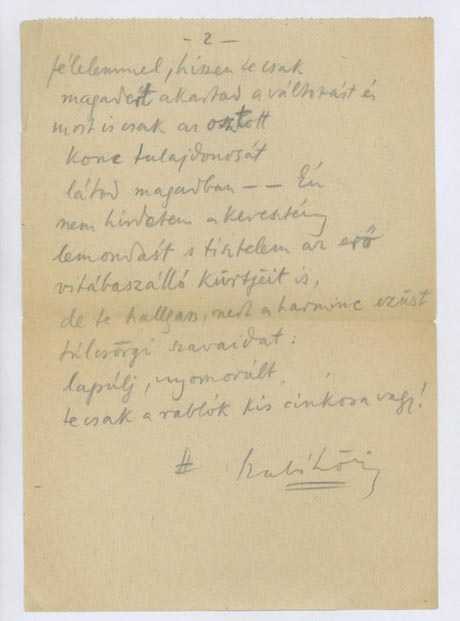 — 2 —
félelemmel, hiszen te csak
magadért akartad a váltszást és
most is csak az osztott
konc tulajdonosát
látod magadban — — Én
nem hirdetem a keresztény
lemondást s tisztelem az erő
vitábaszálló kürtjeit is,
de te hallgass, mert a harminc ezüst
túlcsörgi szavaidat:
lapulj, nyomorult,
te csak a rablók kis cinkosa vagy!
# Szabó Lőrinc